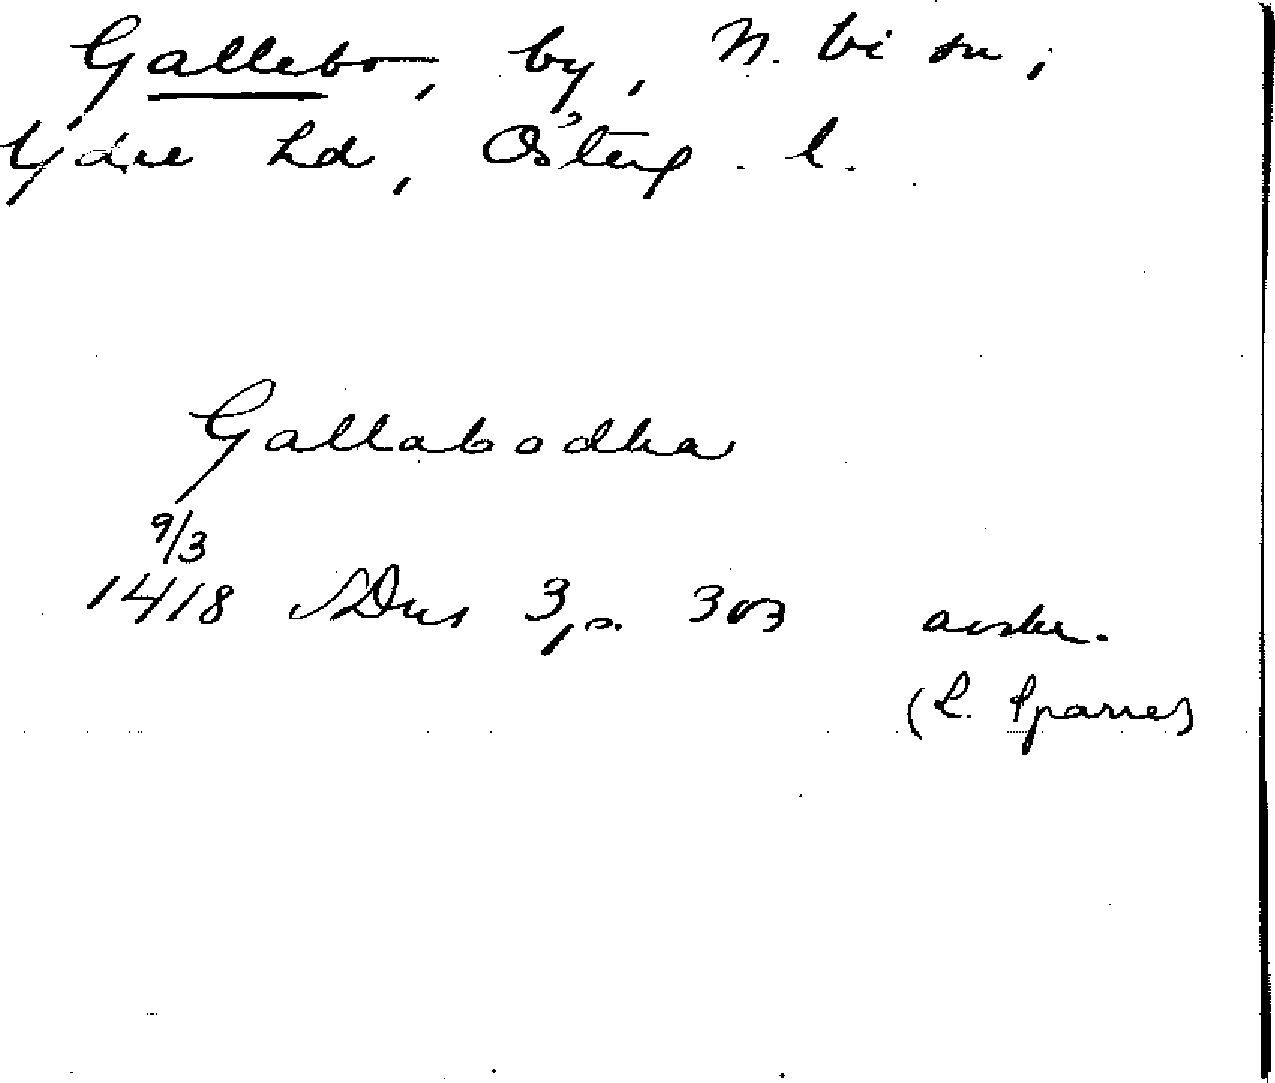 Gallebo, by, N. Vi sn,
Ydre hd, Österg. l.
Gallabodha
9/3
1418 SDns 3, s. 303 avskr.
(L. Sparre)